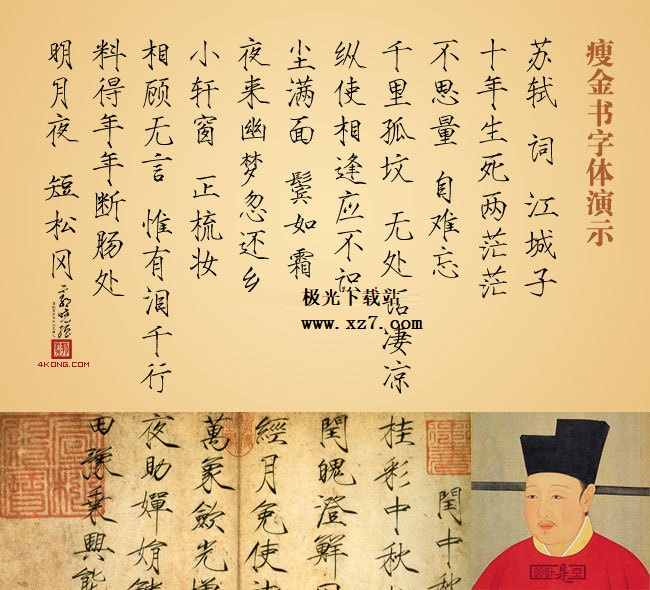 瘦金书字体演示
苏轼 词 江城子
十年生死两茫茫
不思量 自难忘
千里孤坟 无处话凄凉
纵使相逢应不识
尘满面 鬓如霜
夜来幽梦忽还乡
小轩窗 正梳妆
相顾无言 惟有泪千行
料得年年断肠处
明月夜 短松冈
4KONG.COM
极光下载站
www.xz7.com
閏中秋
桂彩中秋
閏魄澄鮮
經月免使
萬象斂光增
夜助嬋娟
田豫乗興能